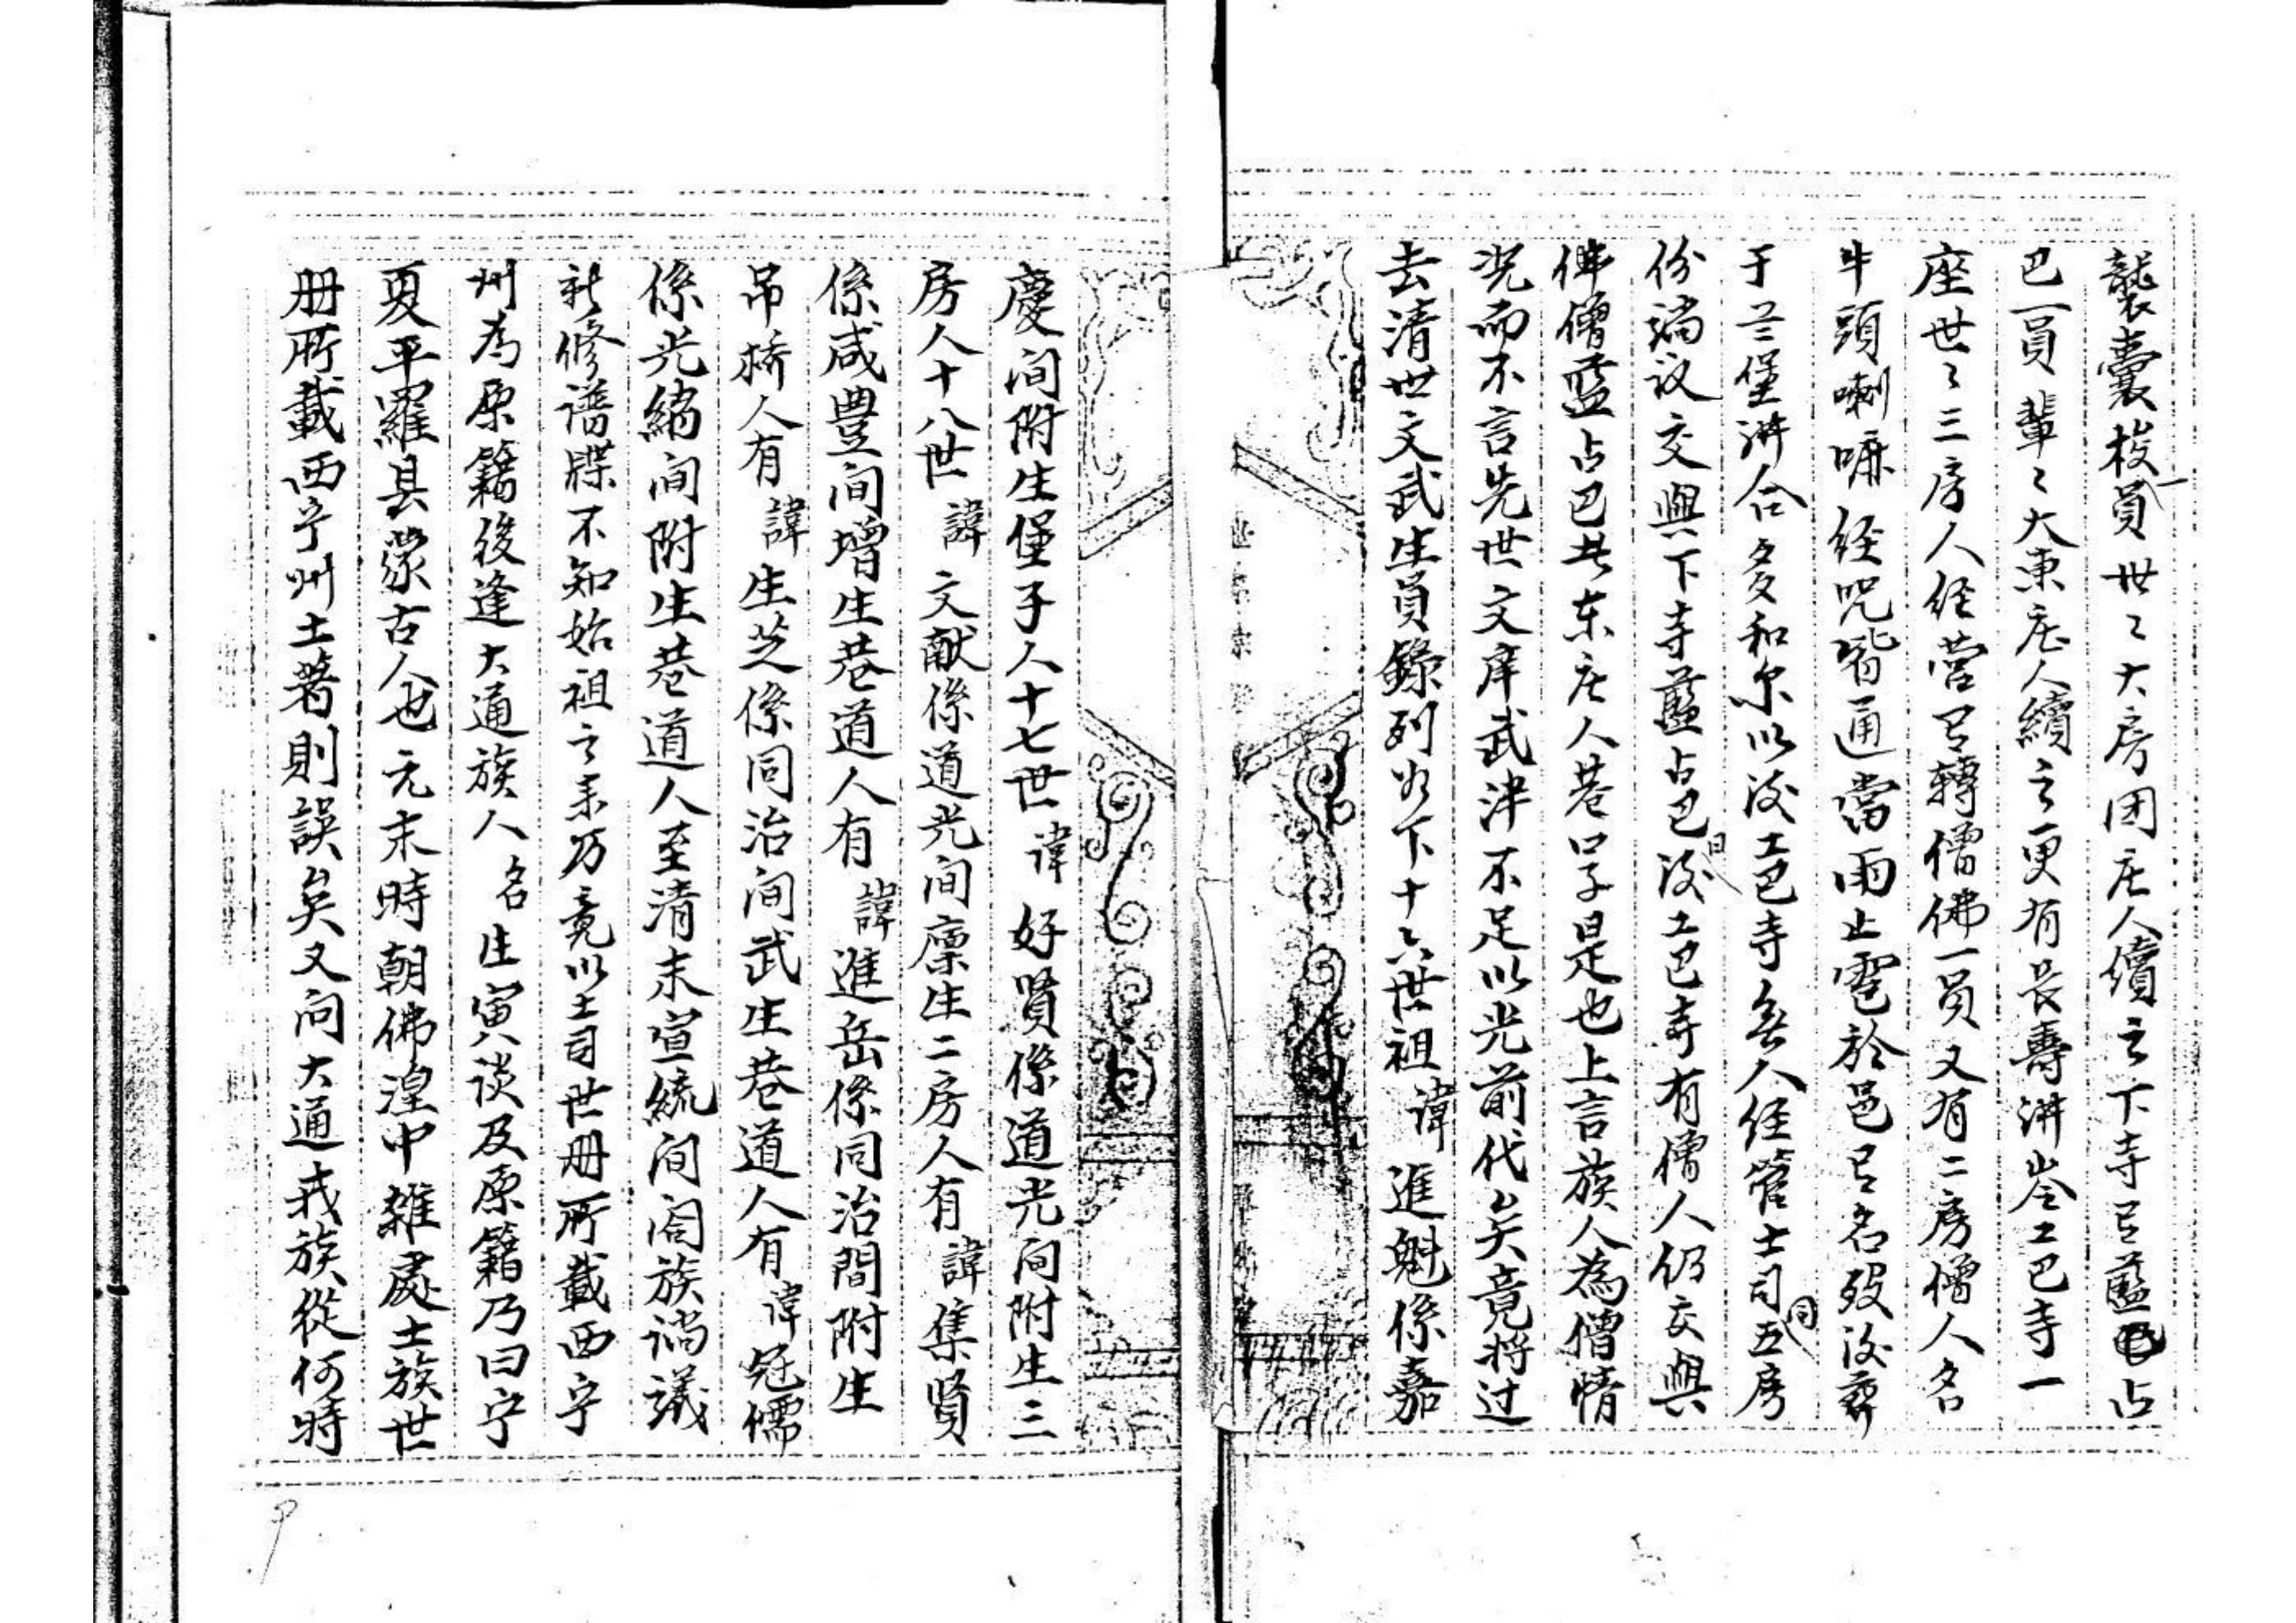 襲囊梭一員世々大房团庄人續之下寺𠮷藍占
巴一員輩々大東庄人續之更有長壽讲岺工巴寺一
座世々三房人经营𠮷轉僧佛一员又有二房僧人名
牛頭喇嘛经咒皆通當雨止雹於邑𠮷名殁後
于三堡讲合多和尔以後工巴寺無人经管土司同五房
份端议交與下寺藍占巴日後工巴寺有僧人仍交與
俾僧藍占巴此东庄人巷口子是也上言族人為僧情
况而不言先世文庠武泮不足以光前代矣竟将过
去清世文武生員錄列如下十六世祖諱進魁係嘉
慶间附生堡子人十七世諱好賢係道光间附生三
房人十八世諱文献係道光间廪生二房人有諱集贤
係咸豊间增生巷道人有諱進岳係同治間附生
吊桥人有諱生芝係同治间武生巷道人有諱冠儒
係光緒间附生巷道人至清末宣統间阖族端議
新修谱牒不知始祖之来乃竟以土司世册所載西宁
州為原籍後逢大通族人名生寅谈及原籍乃曰宁
夏平羅县蒙古人也元末時朝佛湟中雜處土族世
册所載西宁州土著則誤矣又问大通我族從何時